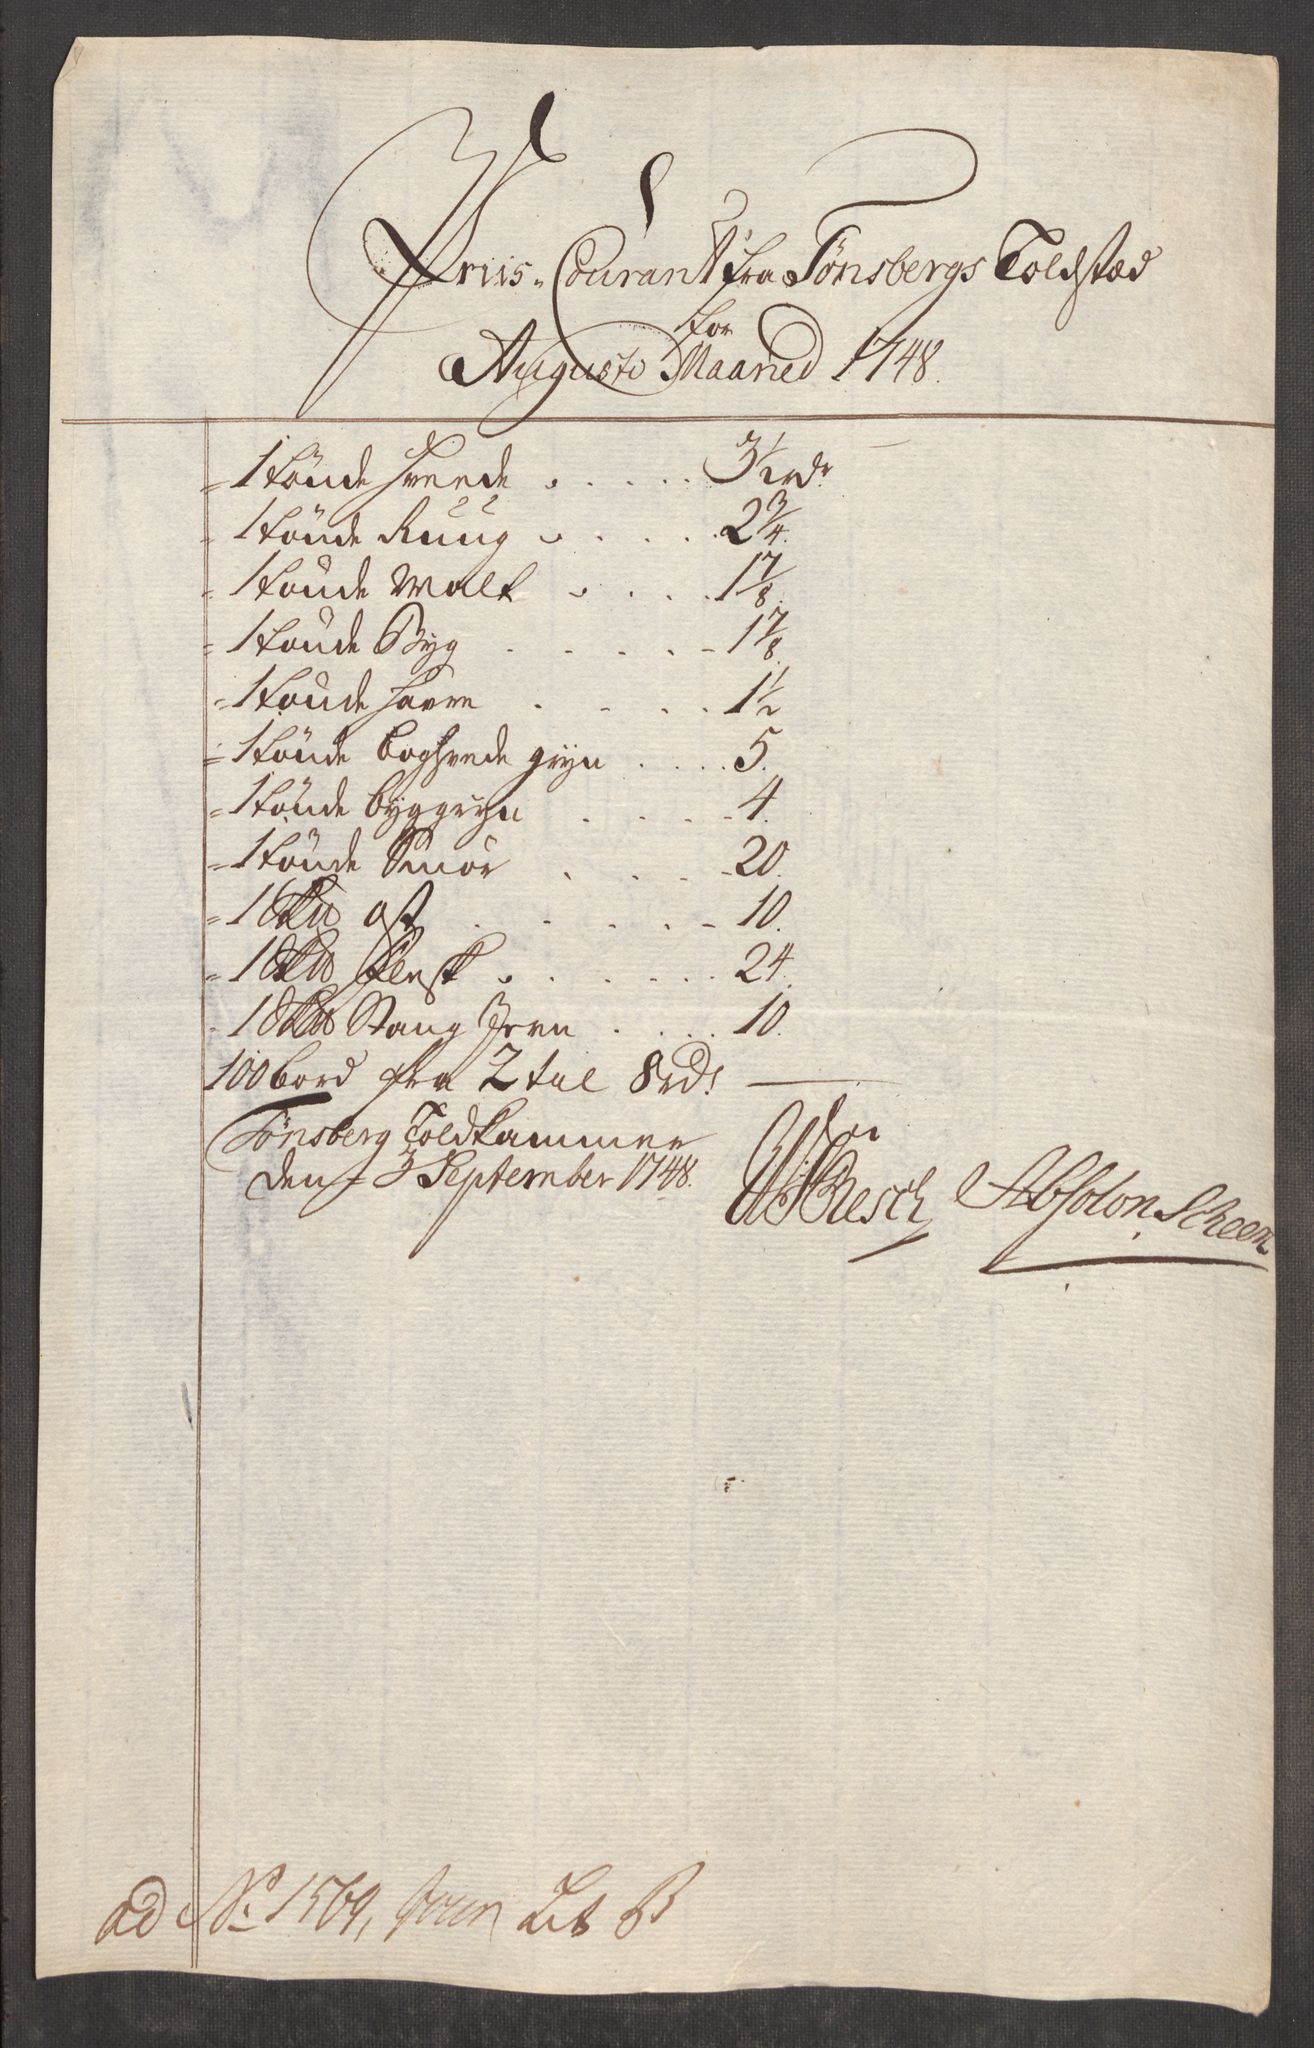 Priis-Courant fra Tønsbergs Toldstæd
for
Augusti Maaned 1748.
1 tönde Hveede . . . . . 3 1/2 rdr
1 tönde Ruug . . . . . 2 3/4.
1 tönde Malt . . . . 1 7/8.
1 tönde Byg . . . . . 1 7/8.
1 tönde Havre . . . . 1 1/2
1 tönde boghvede gryn . . . . 5.
1 tönde byggryn . . . . 4.
1 tönde Smör . . . . 20.
1 Skd ost . . . . . 10.
1 Skd Flesk . . . . . 24.
1 Skd Stang Jern . . . . 10.
100 bord fra 2 tul 8 rdr
Tönsberg Toldkammer
den 3 September 1748.
Resch Absolon Scheen
ad No 1569, Jour Lit B